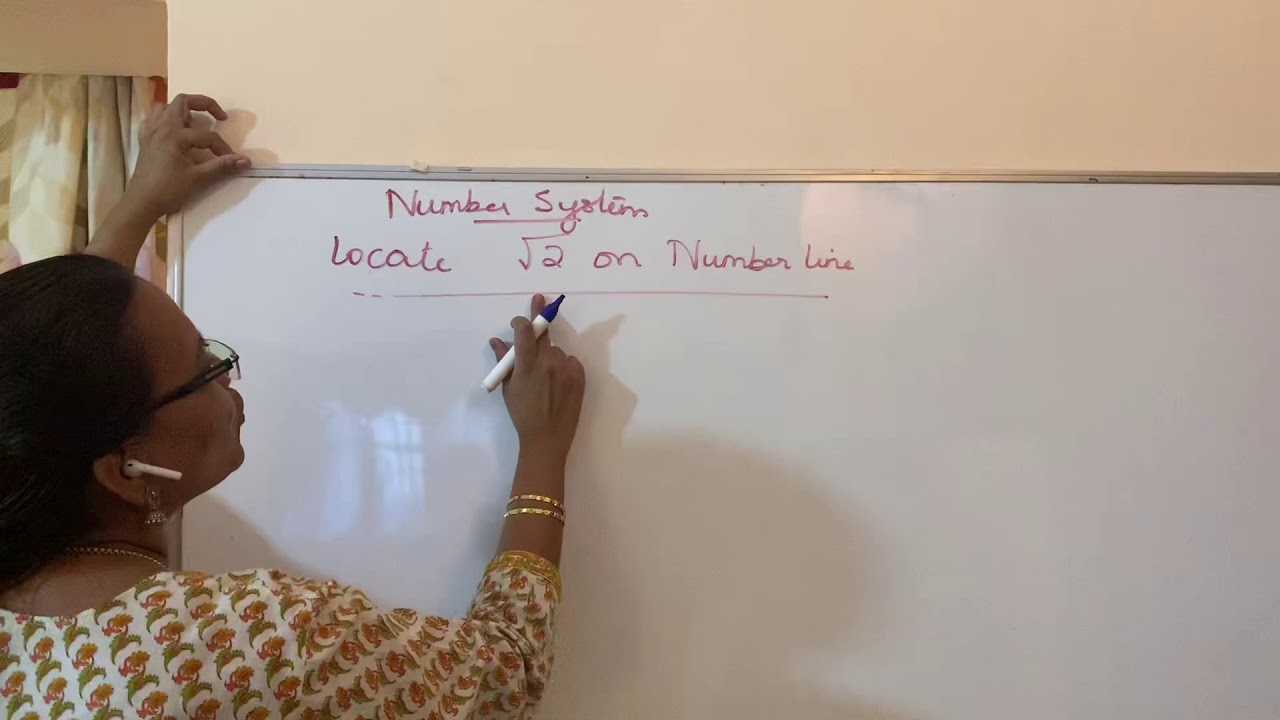 Number System
Locate √2 on Number line